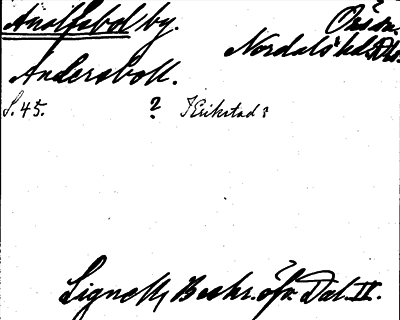 Anolfsbol by. Ör sn.
Nordals hd. Dls.
Andersboll.
S. 45. ? I Erikstad?
Lignell, Beskr. öfv. Dal. II.